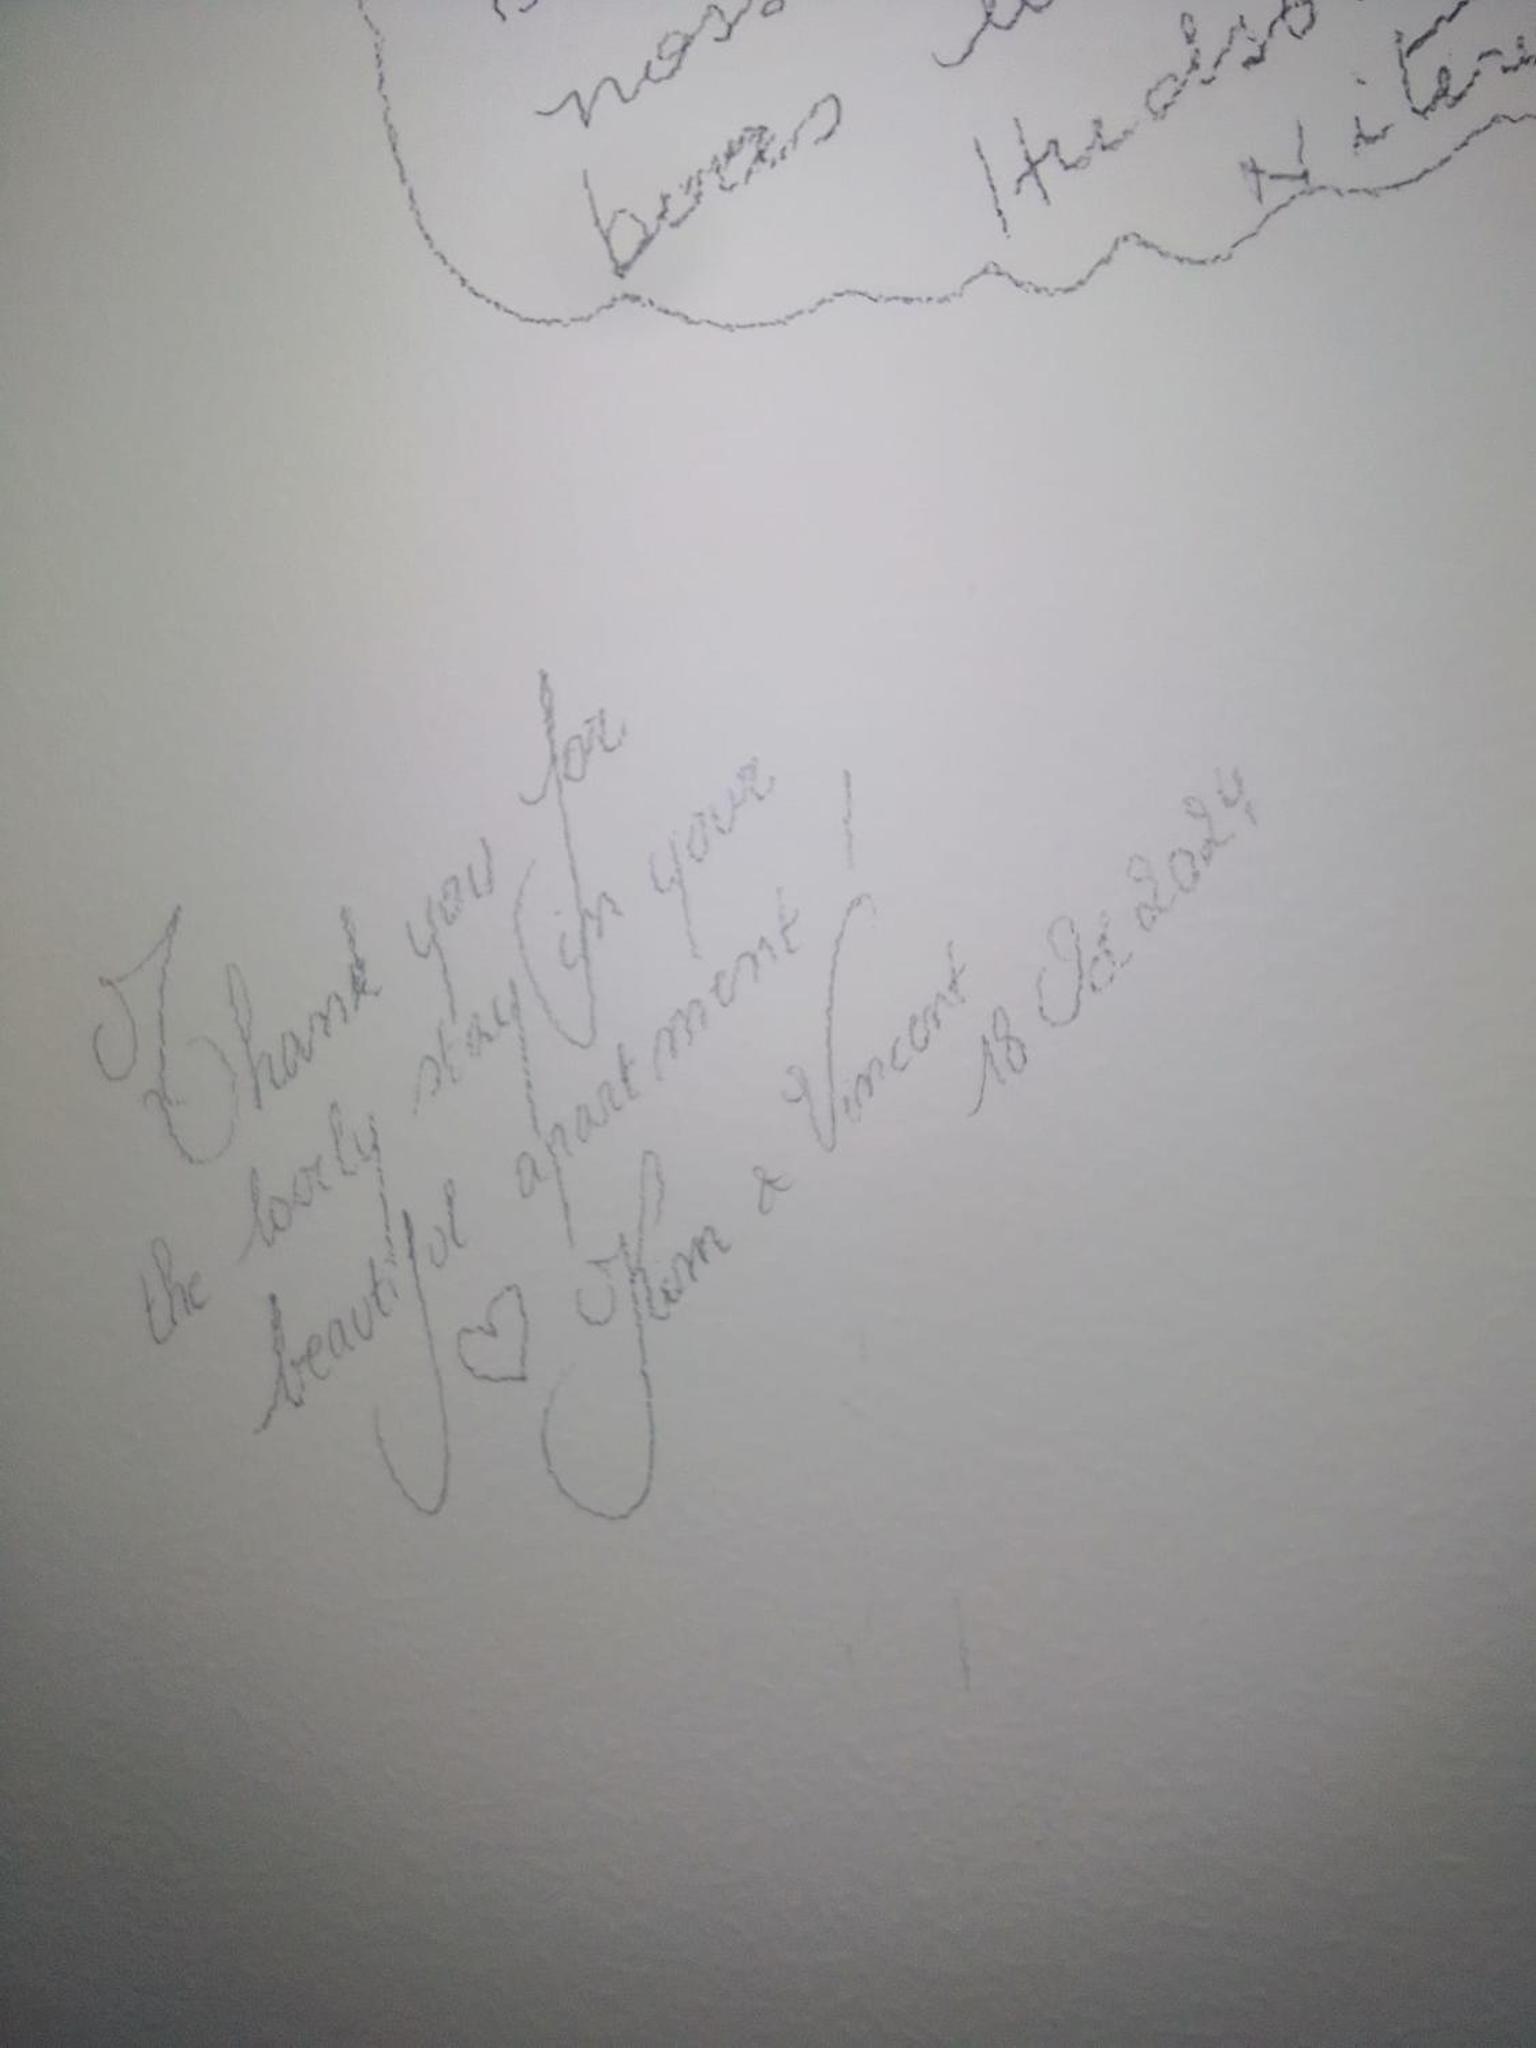 beros
Thank you for
the lovely stay in your
beautiful apartment!
♡ Kim & Vincent
18 Oct 2024